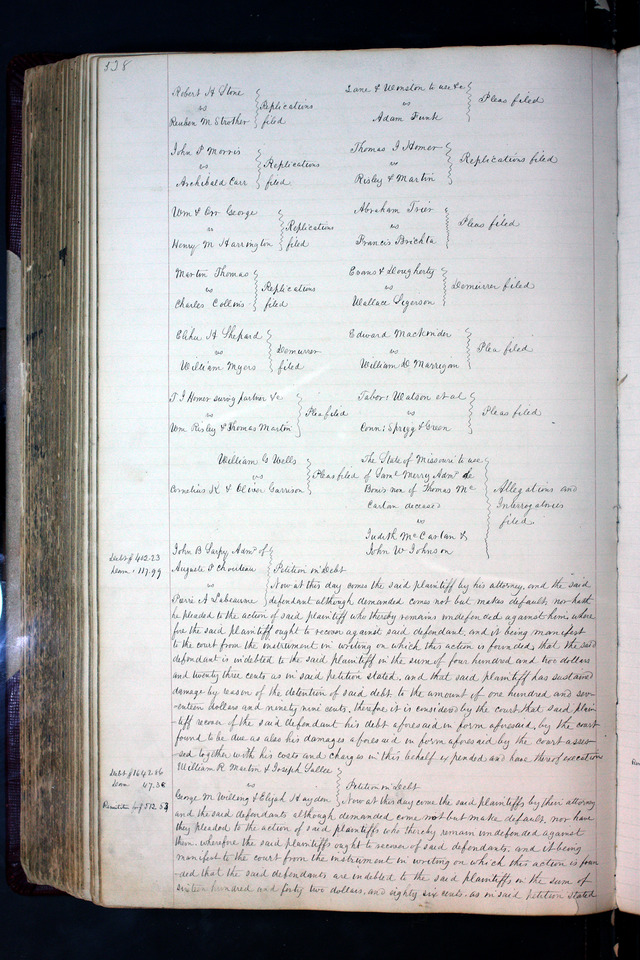 338
Robert H Stone
vs
Reuben M Strother
Replications
filed
Lane & Wonston to use &c
vs
Adam Funk
Pleas filed
John P Morris
vs
Archibald Carr
Replications
filed
Thomas J Homer
vs
Risley & Martin
Replications filed
Wm & Orr George
vs
Henry M Harrington
Replications
filed
Abraham Trier
vs
Francis Brichta
Pleas filed
Martin Thomas
vs
Charles Collins
Replications
filed
Evans & Dougherty
vs
Wallace Sigerson
Demurrer filed
Elihu H Shepard
vs
William Myers
Demurrer
filed
Edward Mackinder
vs
William D Marrigan
Plea filed
T J Homer surviv partner &c
vs
Wm Risley & Thomas Martin
Plea filed
Tabor: Watson et al
vs
Conn: Spregg & Green
Pleas filed
William G Wells
vs
Cornelius K & Oliver Garrison
Pleas filed
The State of Missouri to use
of Saml Merry Admr de
Bonis non of Thomas Mc
Carlan deceased
vs
Judith McCartan &
John W Johnson
Allegations and
Interrogatories
filed
Debt $ 402.23
Dam: 117.99
John B Sarpy Admr of
Auguste P Chouteau
vs
Pierre A Labeaume
Petition in Debt
Now at this day comes the said plaintiff by his attorney, and the said
defendant although demanded comes not but makes default, nor hath
he pleaded to the action of said plaintiff who thereby remains undefended against him, where
fore the said plaintiff ought to recover against said defendant, and it being manifest
to the court from the instrument in writing on which this action is founded, that the said
defendant is indebted to the said plaintiff in the sum of four hundred and two dollars
and twenty three cents as in said petition stated, and that said plaintiff has sustained
damage by reason of the detention of said debt to the amount of one hundred and sev-
-enteen dollars and ninety nine cents, therefore it is considered by the court that said plain-
tiff recover of the said defendant his debt aforesaid in form aforesaid, by the court
found to be due as also his damages aforesaid in form aforesaid by the court asses-
-sed together with his costs and charges in this behalf expended and have thereof execution
Debt $ 1642.86
Dam 47.38
Remittitur for $ 512 53
William R Martin & Joseph Sallee
vs
George M Willing & Elijah Hayden
Petition in Debt
Now at this day come the said plaintiffs by their attorney
and the said defendants although demanded come not but make default, nor have
they pleaded to the action of said plaintiffs who thereby remain undefended against
them, wherefore the said plaintiffs ought to recover of said defendants, and it being
manifest to the court from the instrument in writing on which this action is foun
-ded that the said defendants are indebted to the said plaintiffs in the sum of
sixteen hundred and forty two dollars, and eighty six cents, as in said petition stated